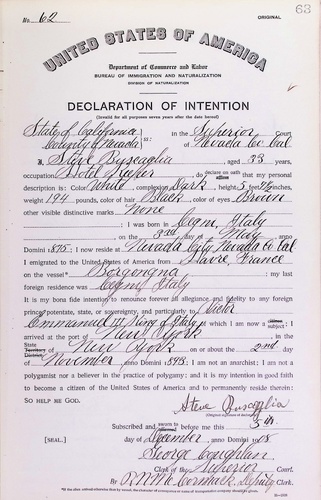 63
No. 62
ORIGINAL
UNITED STATES OF AMERICA
Department of Commerce and Labor
BUREAU OF IMMIGRATION AND NATURALIZATION
DIVISION OF NATURALIZATION
DECLARATION OF INTENTION
(Invalid for all purposes seven years after the date hereof)
State of California
County of Nevada ss: In the Superior Court
Nevada Co Cal
I, Steve Buscaglia, aged 33 years,
occupation Hotel Keeper, do declare on oath that my personal
description is: Color White, complexion Dark, height 5 feet inches,
weight 194 pounds, color of hair Black, color of eyes Brown
other visible distinctive marks None
I was born in Italy
on the day of May, anno
Domini 1875; I now reside at Nevada City, Nevada Co Cal
I emigrated to the United States of America from Havre, France
on the vessel* ; my last
foreign residence was Italy
It is my bona fide intention to renounce forever all allegiance and fidelity to any foreign
prince, potentate, state, or sovereignty, and particularly to Victor
Emmanuel III King of Italy, of which I am now a subject; I
arrived at the port of New York, in the
State
Territory
District of New York on or about the 2nd day
of November, anno Domini 1895; I am not an anarchist; I am not a
polygamist nor a believer in the practice of polygamy; and it is my intention in good faith
to become a citizen of the United States of America and to permanently reside therein:
SO HELP ME GOD.
Steve Buscaglia
(Original signature of declarant)
Subscribed and sworn to before me this 5th
[SEAL.] day of December, anno Domini 1908
George Coughlan
Clerk of the Superior Court.
By R. N. McCormack, Deputy Clerk.